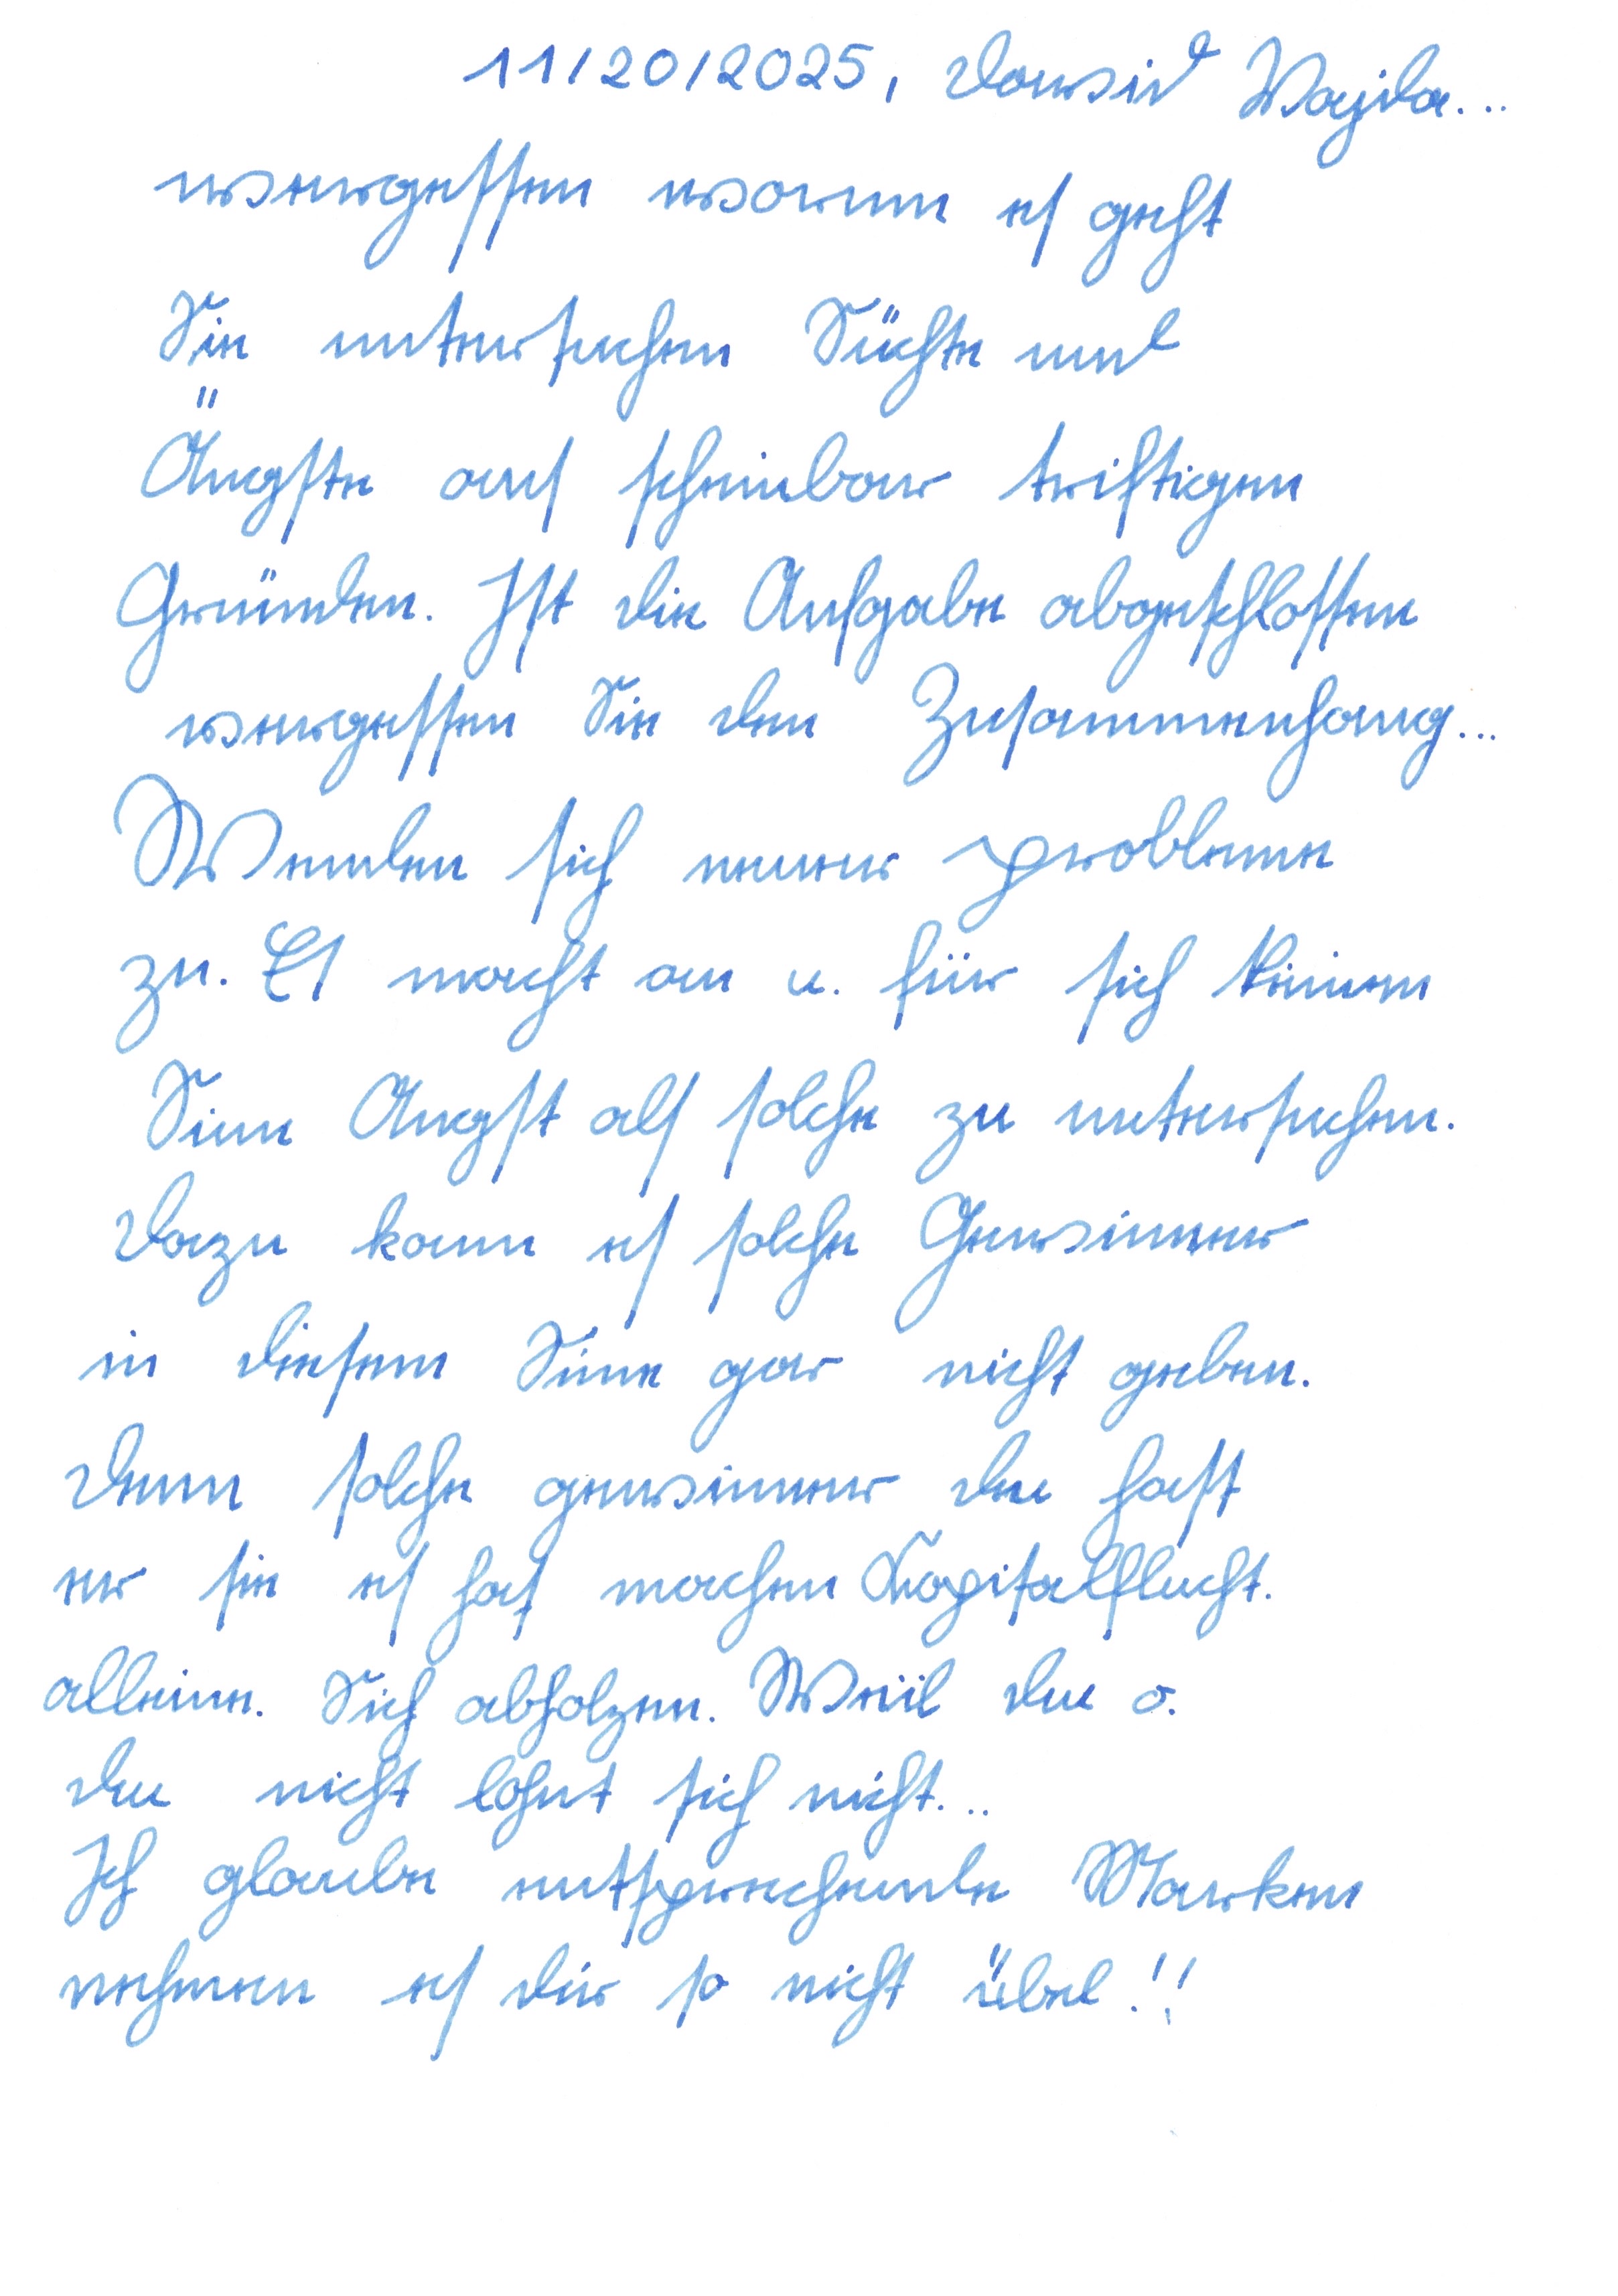 11/20/2025, David Wajda...
vergessen worum es geht
Sie untersuchen Süchte und
Ängste aus scheinbar triftigen
Gründen. Ist die Aufgabe abgeschlossen
vergessen Sie den Zusammenhang...
Wenden sich neuer Probleme
zu. Es macht an u. für sich keinen
Sinn Angst als solche zu untersuchen.
Dazu kann es solche Gewinner
in diesem Sinne gar nicht geben.
Denn solche gewinner du hast
er sie es hat machen Kapitalflucht.
alleine. Sich abholzen. Weil du o.
du nicht lohnt sich nicht...
Ich glaube entsprechende Marken
nehmen es dir so nicht übel!!